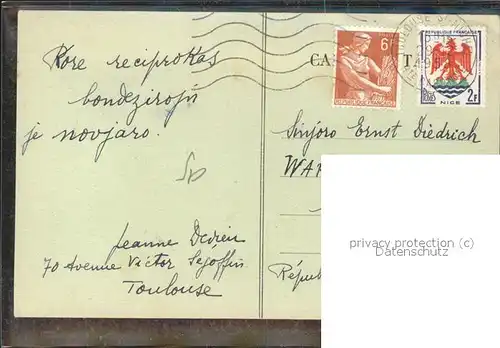 Kore reciprokas
bondezirojn
je novjaro.
Jeanne Dedieu
70 Avenue Victor Ségoffin
Toulouse
CA
T
6F
REPUBLIQUE FRANÇAISE
REPUBLIQUE FRANÇAISE
NICE
2F
Sinjoro Ernst Diedrich
WAR
Républ
privacy protection (c)
Datenschutz